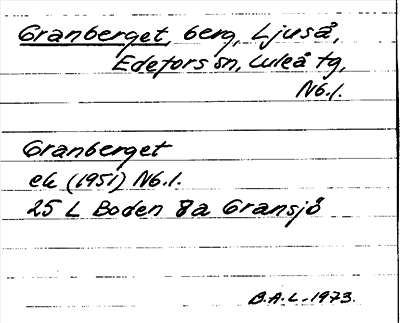 Granberget, berg, Ljuså,
Edefors sn, Luleå tg,
Nb.l.
Granberget
ek (1951) Nb.l.
25 L Boden 8a Gransjö
B.A.L. 1973.